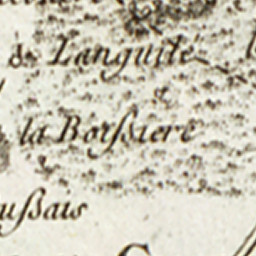 de Languité
la Boißiere
ußais